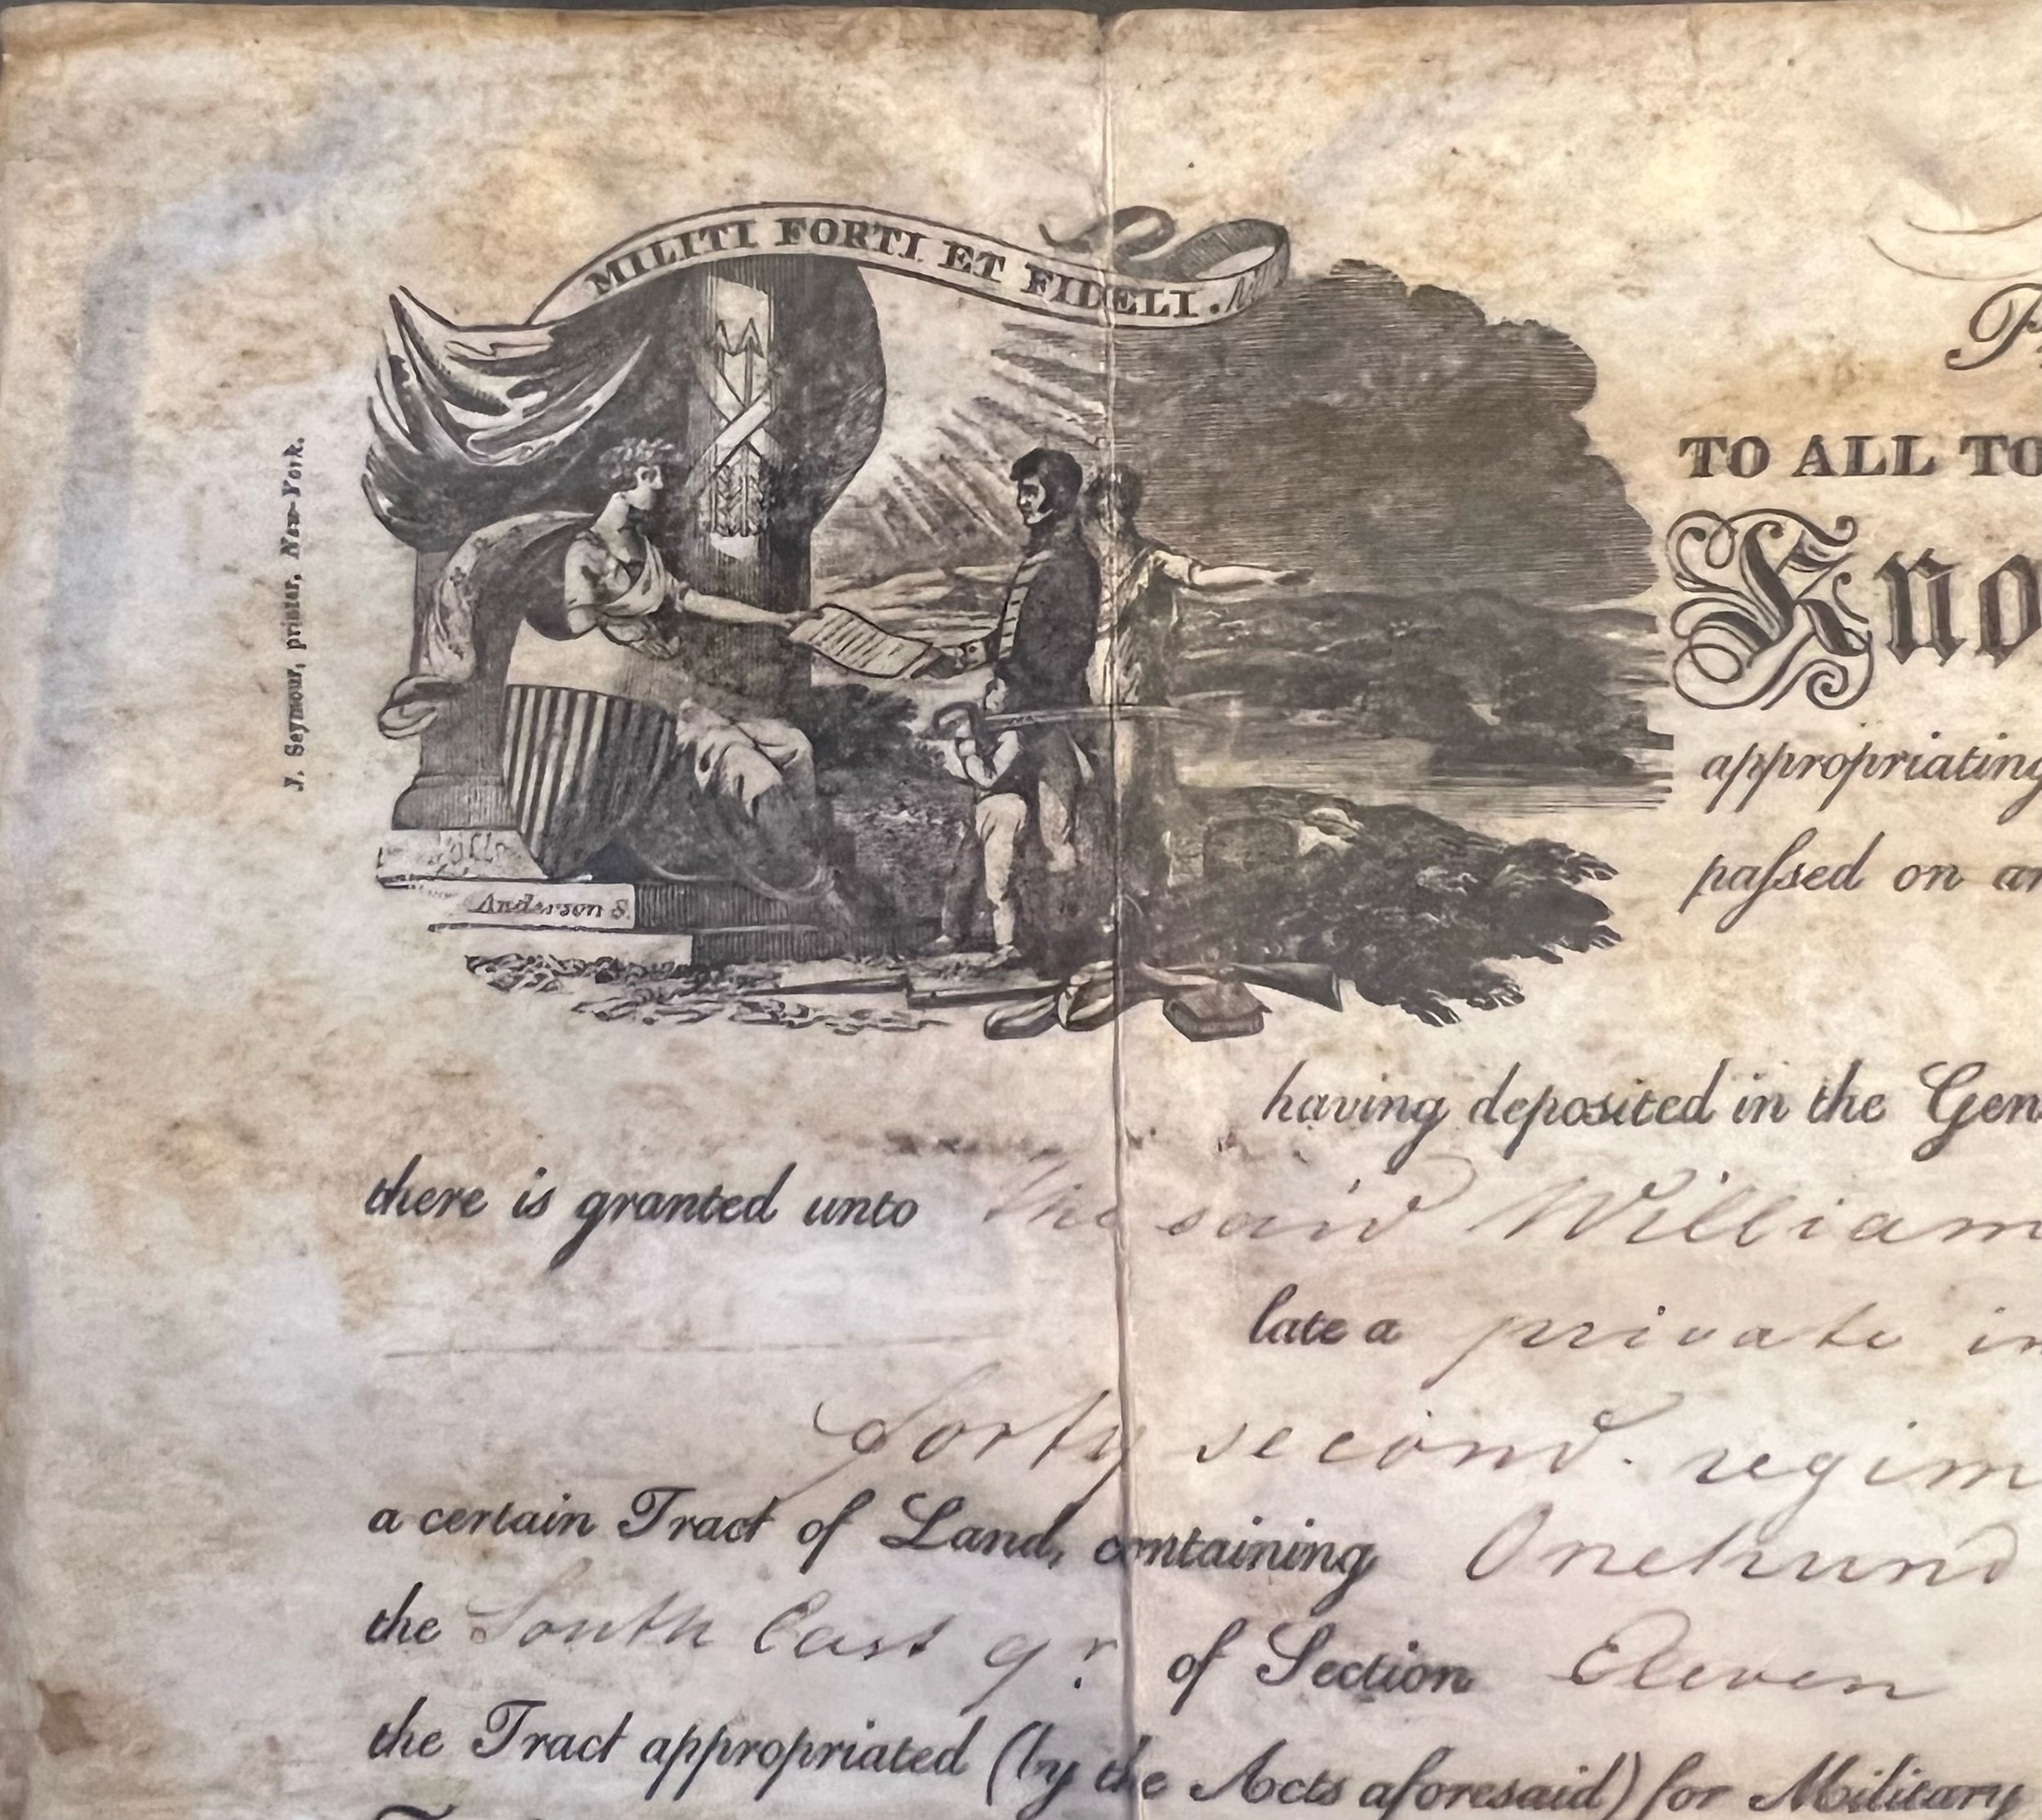 MILITI FORTI ET FIDELI.
J. Seymour, printer, New-York.
TO ALL TO
Kno
appropriating
paſsed on an
Anderson S.
having deposited in the Gen
there is granted unto the said William
late a private in
forty second regim
a certain Tract of Land, containing One hund
the South East qr. of Section Eleven
the Tract appropriated (by the Acts aforesaid) for Military